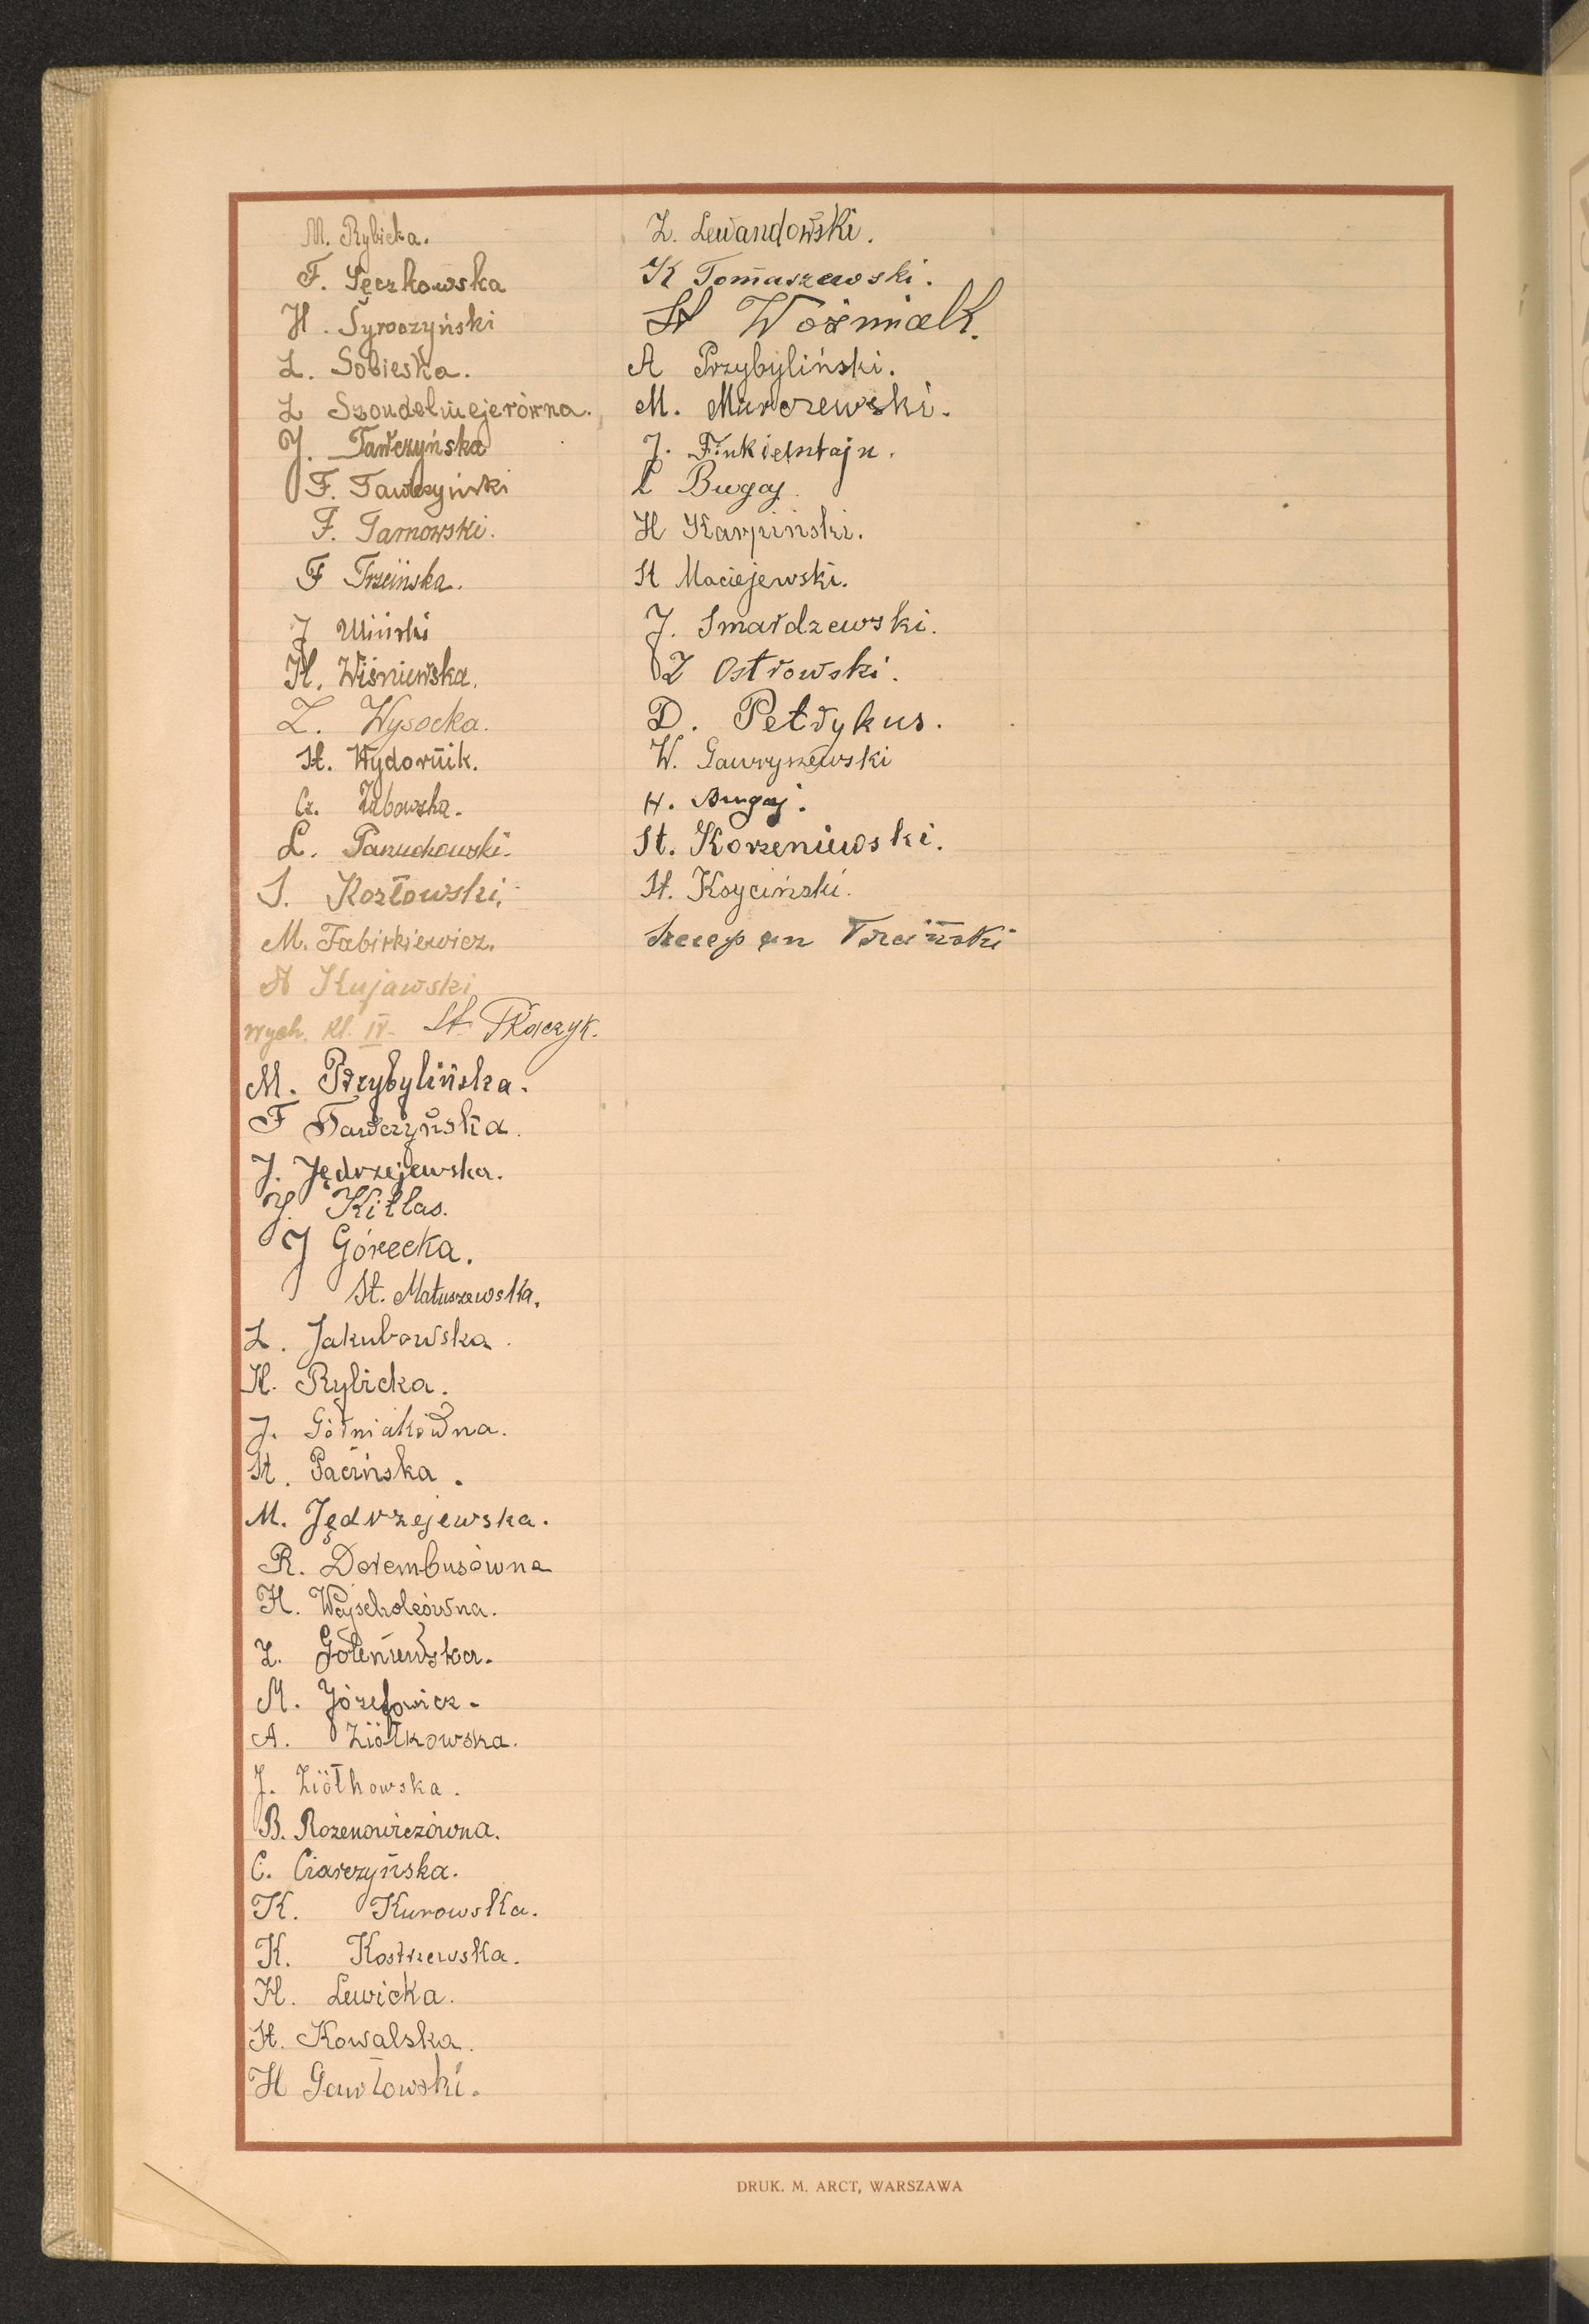 M. Rybicka.
F. Sęczkowska
H. Syroczyński
L. Sobieska.
Z Szoudelmejerówna.
J. Tawczyńska
F. Tawczyński
F. Tarnowski.
F Trzcińska.
J Uliński
H. Wiśniewska.
Z. Wysocka.
St. Wydornik.
Cz. Żabowska.
L. Paruchowski.
S. Kozłowski.
M. Fabirkiewicz.
A Kujawski
wych. kl. IV. St. Tkaczyk.
M. Przybylińska.
F Tawczyńska.
J. Jędrzejewska.
J. Kitlas.
J Górecka.
St. Matuszewska.
L. Jakubowska.
H. Rybicka.
J. Górniakówna.
St. Pacińska.
M. Jędrzejewska.
R. Dorembusówna
H. Wajscholcówna.
Z. Goleniewska.
M. Józefowicz.
A. Ziółkowska.
J. Ziółkowska.
B. Rozenowiczówna.
C. Ciarczyńska.
K. Kurowska.
K. Kostrzewska.
H. Lewicka.
St. Kowalska.
H Gawłowski.
Z. Lewandowski.
K Tomaszewski.
St Woźniak.
A Przybyliński.
M. Murczewski.
J. Finkielsztajn.
L Bugaj.
H Karpiński.
St Maciejewski.
J. Smardzewski.
Z Ostrowski.
D. Petrykus.
W. Gawryszewski
H. Bugaj.
St. Korzeniewski.
St. Kayciński.
Szczepan Trzciński
DRUK. M. ARCT, WARSZAWA